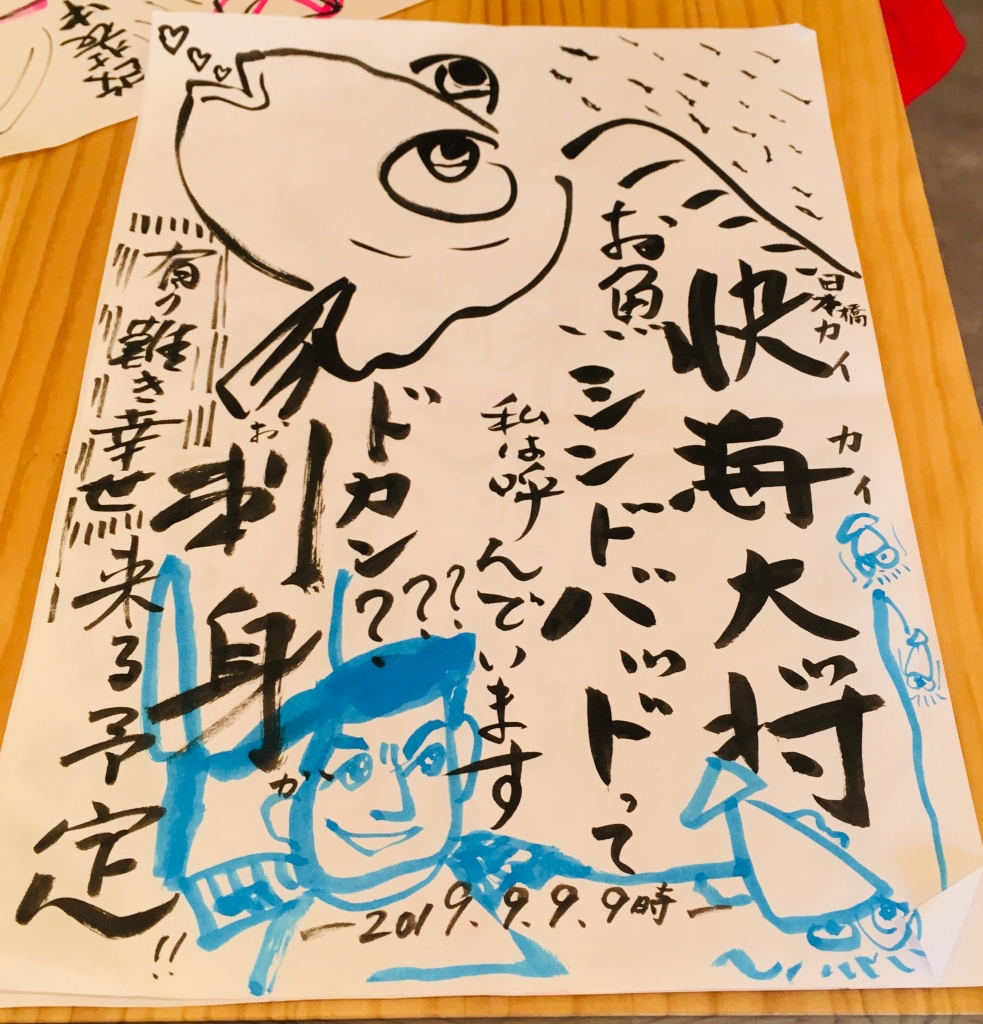 日本橋カイ カイ
快海大将
お魚シンドバッドって
私は呼んでいます
ドカン???
お刺身が
有り難き幸せ来る予定!!
—2019.9.9.9時—